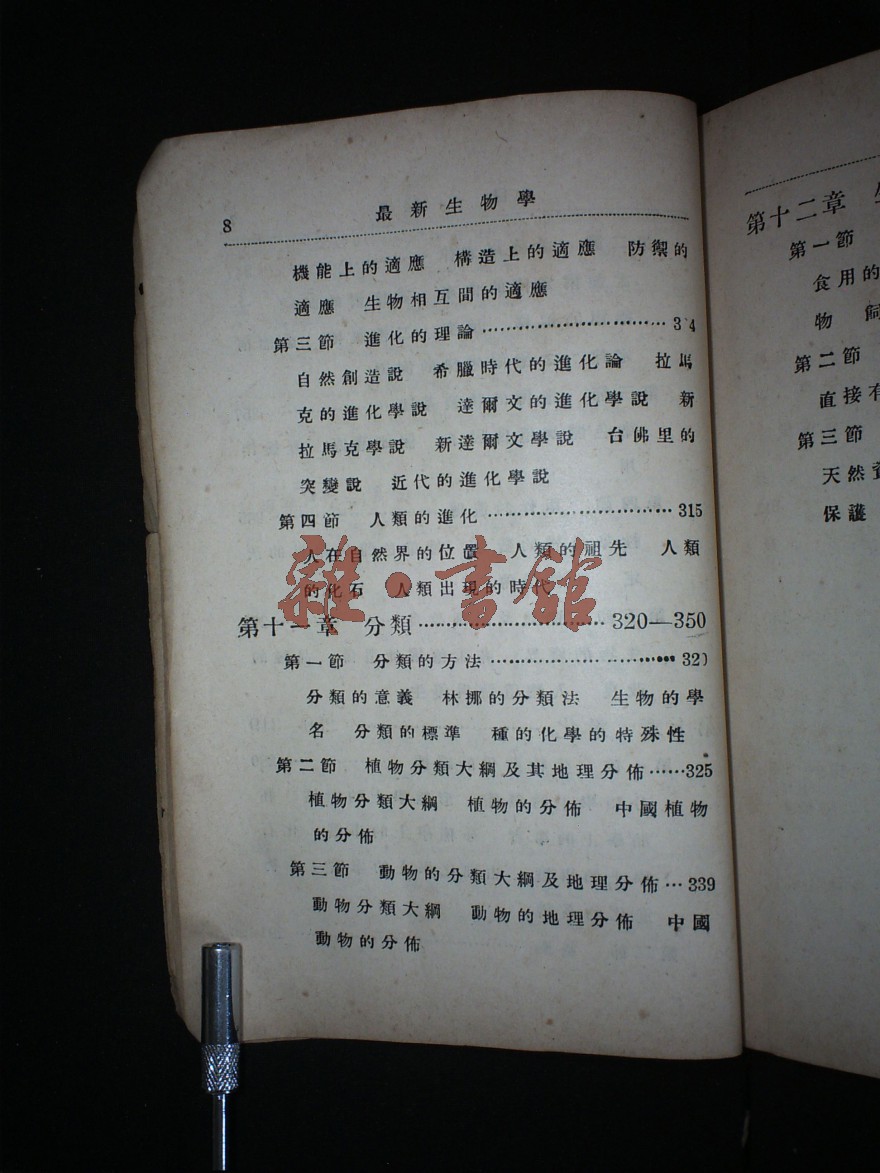 8
最新生物學
機能上的適應 構造上的適應 防禦的
適應 生物相互間的適應
第三節 進化的理論
自然創造說 希臘時代的進化論 拉馬
克的進化學說 達爾文的進化學說 新
拉馬克學說 新達爾文學說 台佛里的
突變說 近代的進化學說
第四節 人類的進化……315
人在自然界的位置 人類的祖先 人類
的化石 人類出現的時代
雜·書館
第十一章 分類……320—350
第一節 分類的方法……320
分類的意義 林挪的分類法 生物的學
名 分類的標準 種的化學的特殊性
第二節 植物分類大綱及其地理分佈……325
植物分類大綱 植物的分佈 中國植物
的分佈
第三節 動物的分類大綱及地理分佈…339
動物分類大綱 動物的地理分佈 中國
動物的分佈
第十二章
第一節
食用的
物
第二節
直接有
第三節
天然
保護